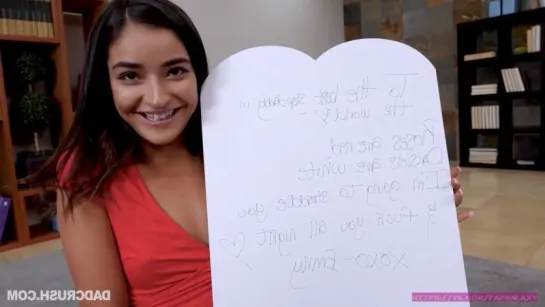 To the best stepdaddy in
the world! -
Roses are red
Daisies are white
I'm going to straddle you
& fuck you all night ♡
XOXO - Emily
DADCRUSH.COM